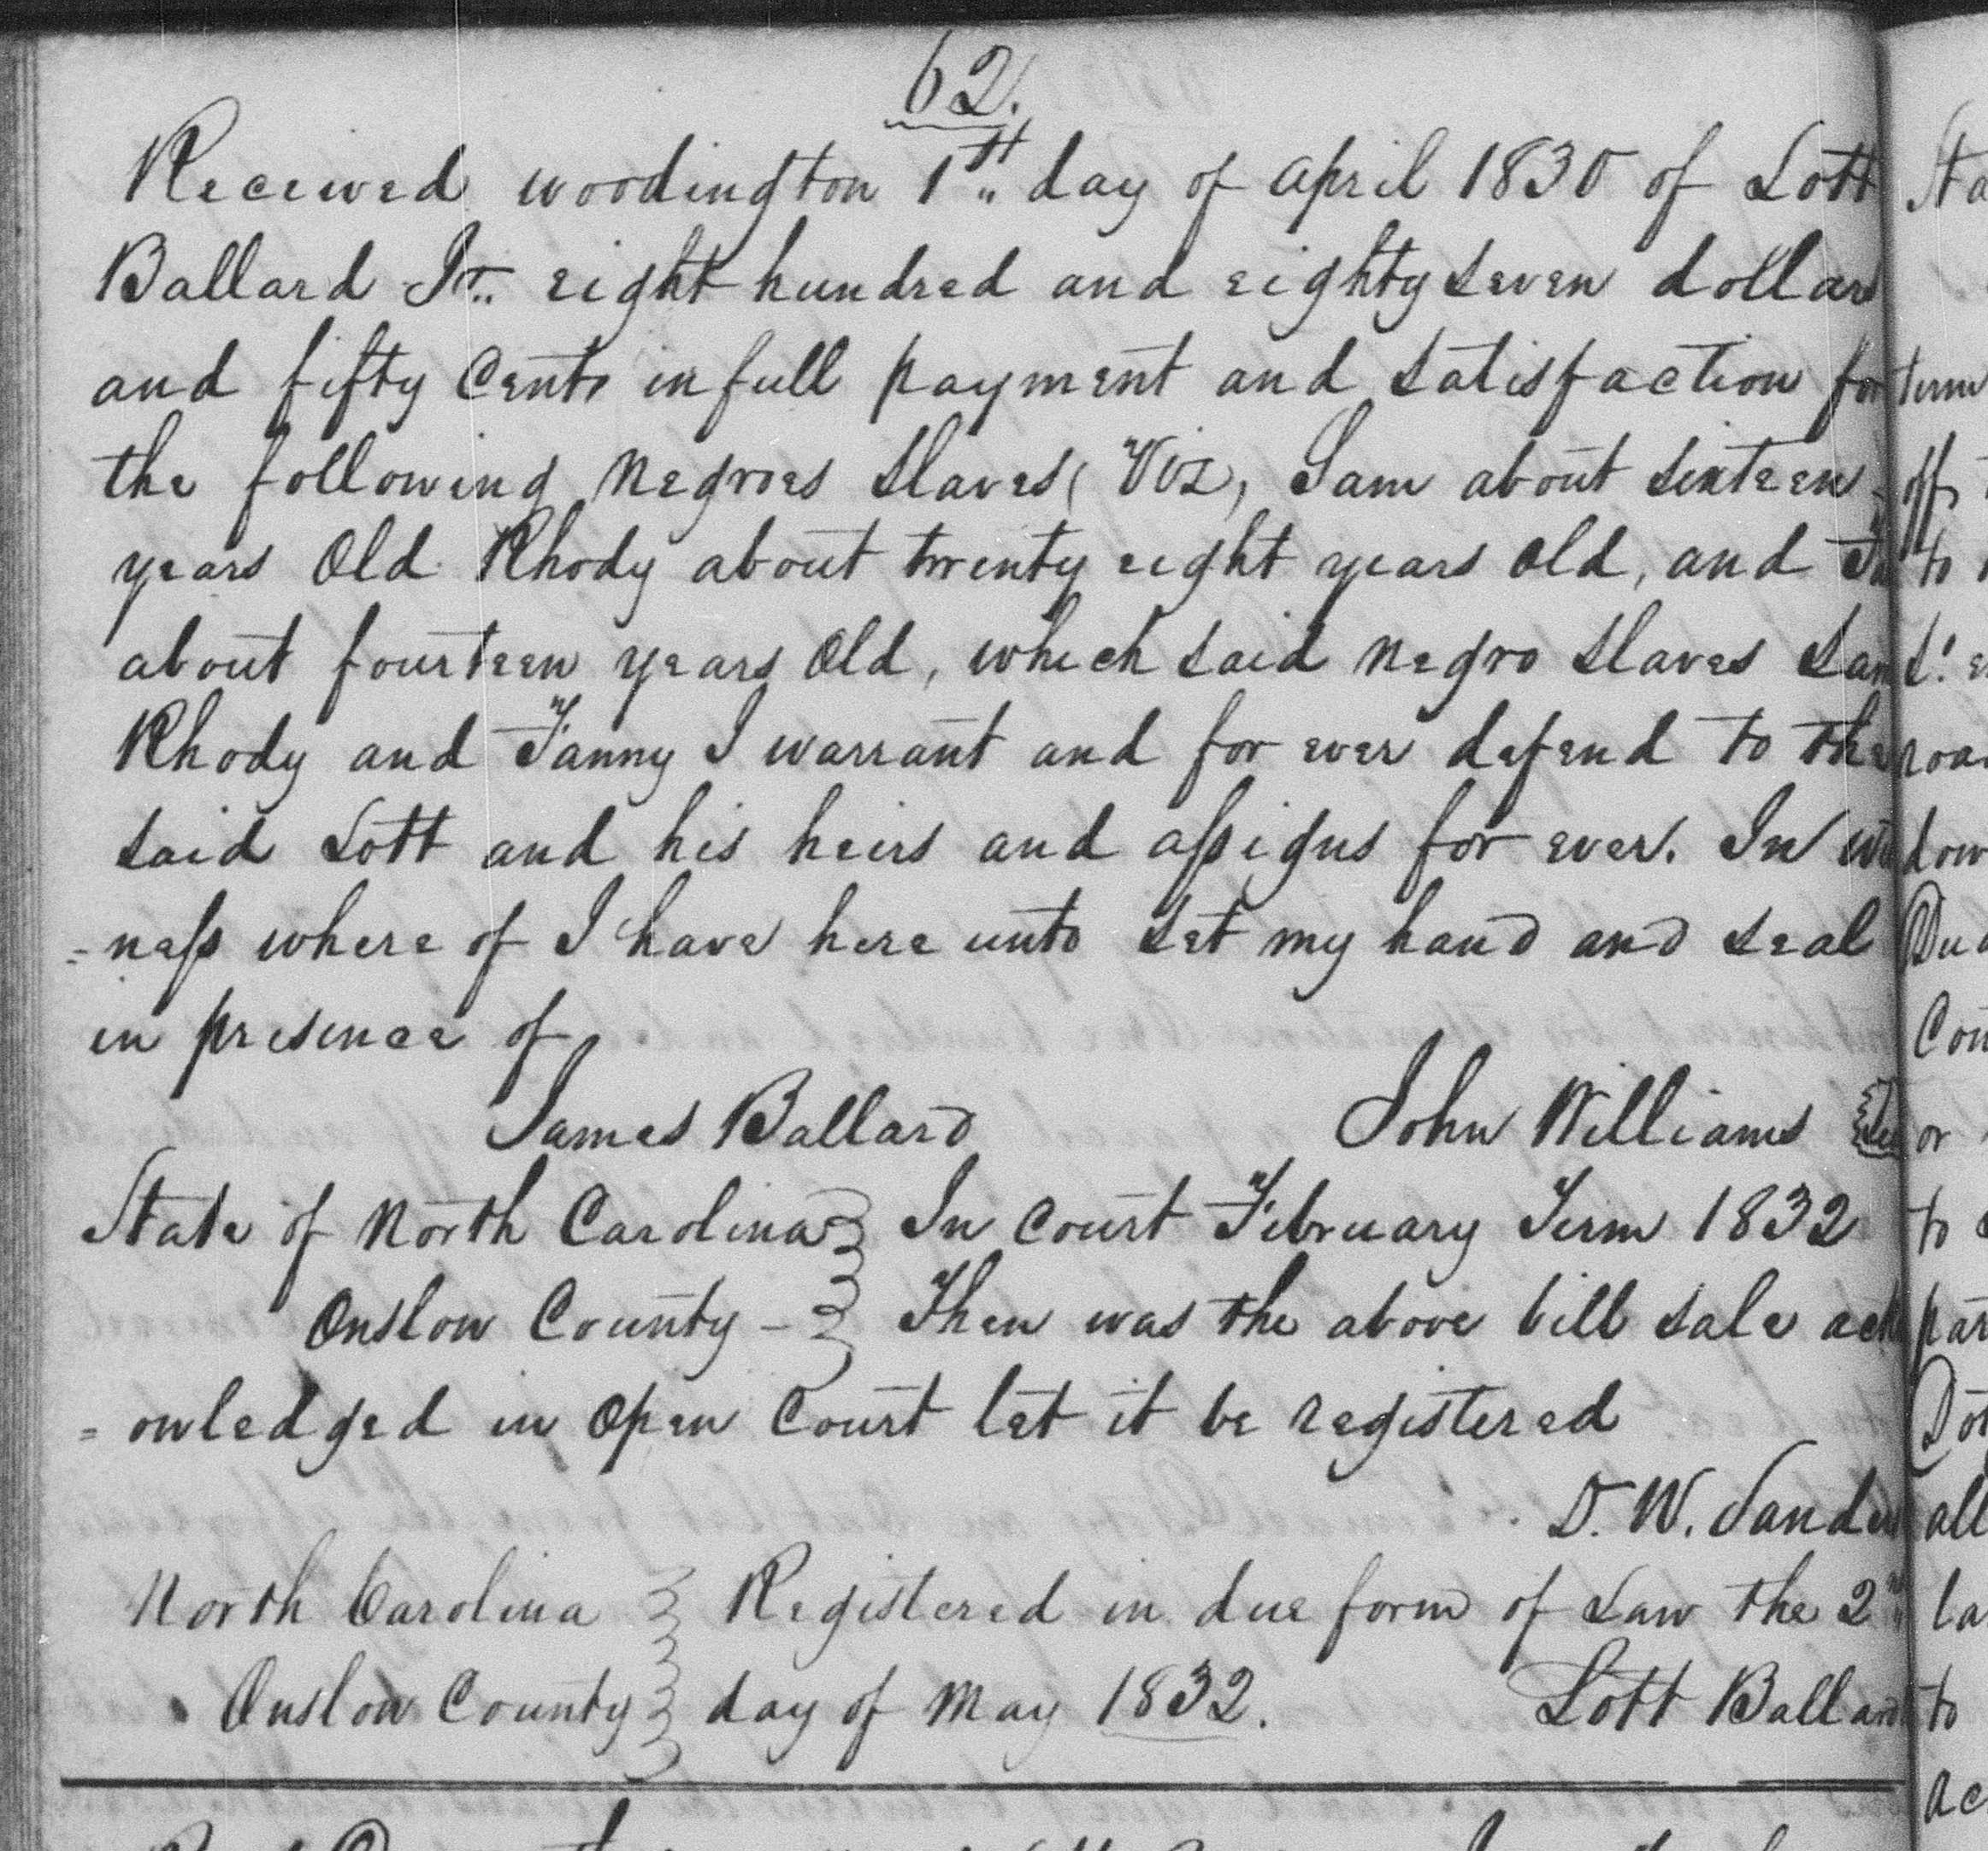 62.
Received woodington 1st day of april 1830 of Lott
Ballard Jr. eight hundred and eighty seven dollars
and fifty Cents in full payment and satisfaction for
the following negroes slaves (Viz, Sam about sixteen
years Old Rhody about twenty eight years old, and
about fourteen years old, which said negro slaves Sam
Rhody and Fanny I warrant and for ever defend to the
said Lott and his heirs and assigns for ever. In wit
=ness where of I have here unto set my hand and seal
in presence of
James Ballard John Williams
State of North Carolina In Court February Term 1832
Onslow County - Then was the above bill sale ack
=owledged in Open Court let it be registered
D. W. Sanders
North Carolina Registered in due form of Law the 2nd
Onslow County day of May 1832. Lott Ballard